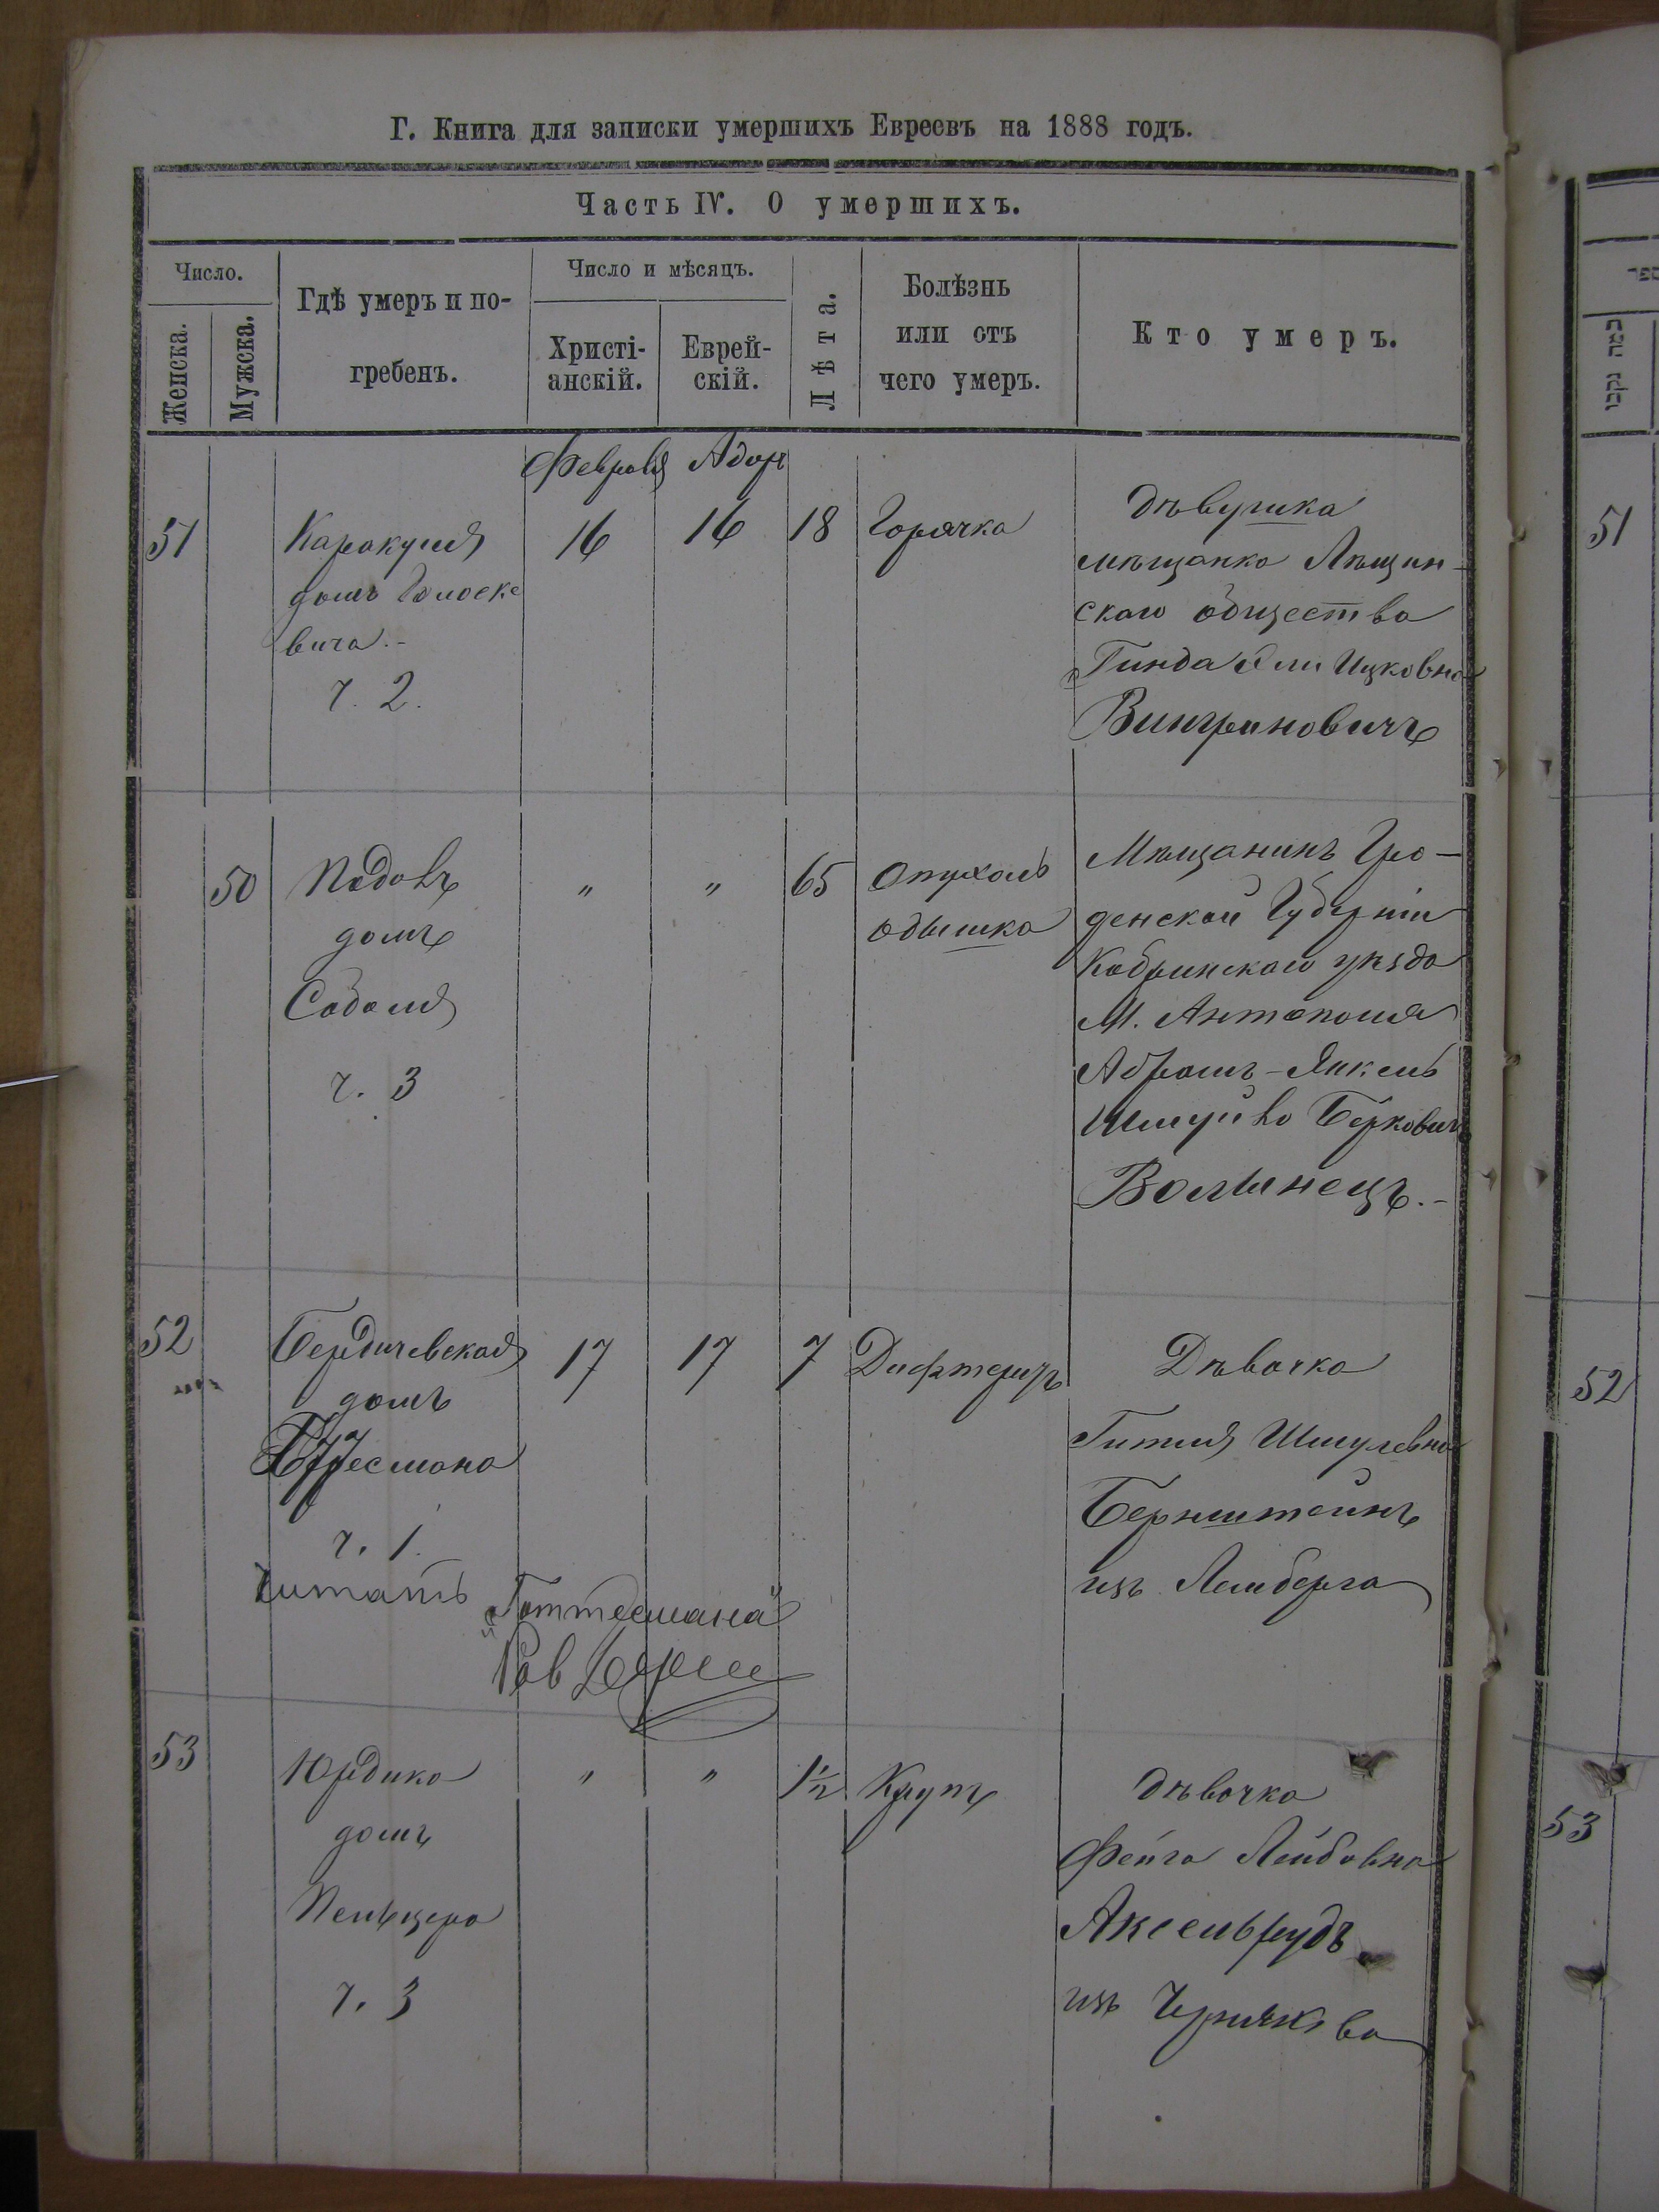 Г. Книга для записки умершихъ Евреевъ на 1888 годъ.
Часть IV. О умершихъ.
Число.
Женска.
Мужска.
Гдѣ умеръ и по-
гребенъ.
Число и мѣсяцъ.
Христі-
анскій.
Еврей-
скій.
Лѣта.
Болѣзнь
или отъ
чего умеръ.
Кто умеръ.
Февраля Адор
51
Каракуця
домъ
вича.-
ч. 2.
16
16
18
Горячка
дѣвушка
мѣщанка Лѣщин-
скаго общества
Гинда Ицковна
50
домъ
Соболя
ч. 3
"
"
65
Опухоль
одышка
Мѣщанинъ Гро-
денской Губерніи
Кобринскаго уѣзда
М. Антополя
Абрамъ-Янкель
Берковичъ
Волынецъ.-
52
Бердичевская
домъ
ч. 1.
Читать "Готтесмана"
Рав
17
17
7
Дифтеритъ
Дѣвочка
Гитля Шмулевна
Бернштейнъ
изъ Лемберга
53
Юрдика
домъ
Пельцера
ч. 3
"
"
1½
Крупъ
дѣвочка
Фейга Лейбовна
Аксельрудъ
изъ Чернякова
51
52
53